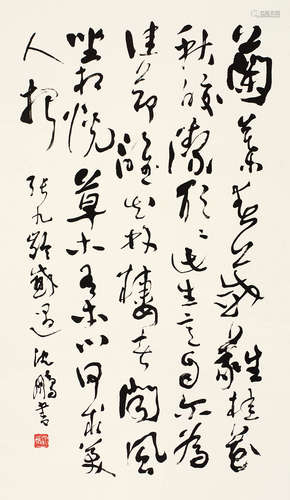 蘭葉春葳蕤桂華
秋皎潔欣々此生意自尔為
佳節誰知林棲者聞風
坐相悦草木有本心何求美
人折
張九齡感遇沈鵬書